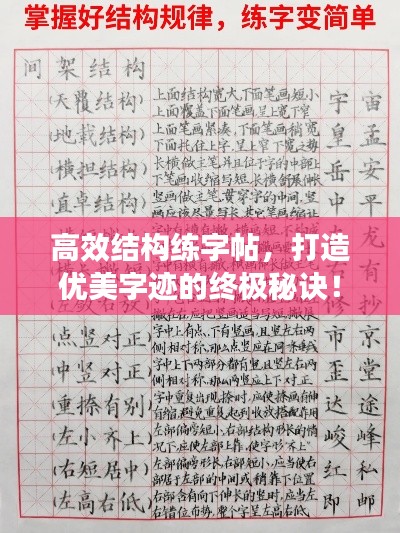 掌握好结构规律，练字变简单
间架结构
(天覆结构) 上面结构宽大,下面笔画短小, 宇 宙
上面覆盖下面笔画,呈上宽下窄
(地载结构) 上面笔画紧凑,下面笔画稍宽 皇 孟
下面托住上字,呈上窄下宽之势
(横担结构) 长横做主笔,并且位于字的中部上 岳 安
下笔画收缩与短,长横舒展伸长
(直卓结构) 竖画做主笔,贯穿字的中间,竖 中 平
高效结构练字帖，打造
优美字迹的终极秘诀！
(点竖对正) 字中上有点,下有竖画,且竖左右两 市 京
侧相对称,那么点竖应在同条垂
(中竖对正) 字中上下两部分都有竖画,且竖左右两 歪 堂
侧相对称,那么两竖应上下对正
(重捺有别) 字中重复出现捺时,应使捺画有伸 达 途
有缩,避免重复起到收放搭配作用
(左小齐上) 左部偏旁短小,右部结构形长的情 峻 峰
况下,应使左部上靠,使字形"齐上"
(右短居中) 左部偏旁形长,右部短小,应当使右 红 私
部居于左部的中间或稍靠下位置
(左高右低) 右部含有向下伸长的竖时,应当左 即 邮
右错位布势,整个字呈左高右低